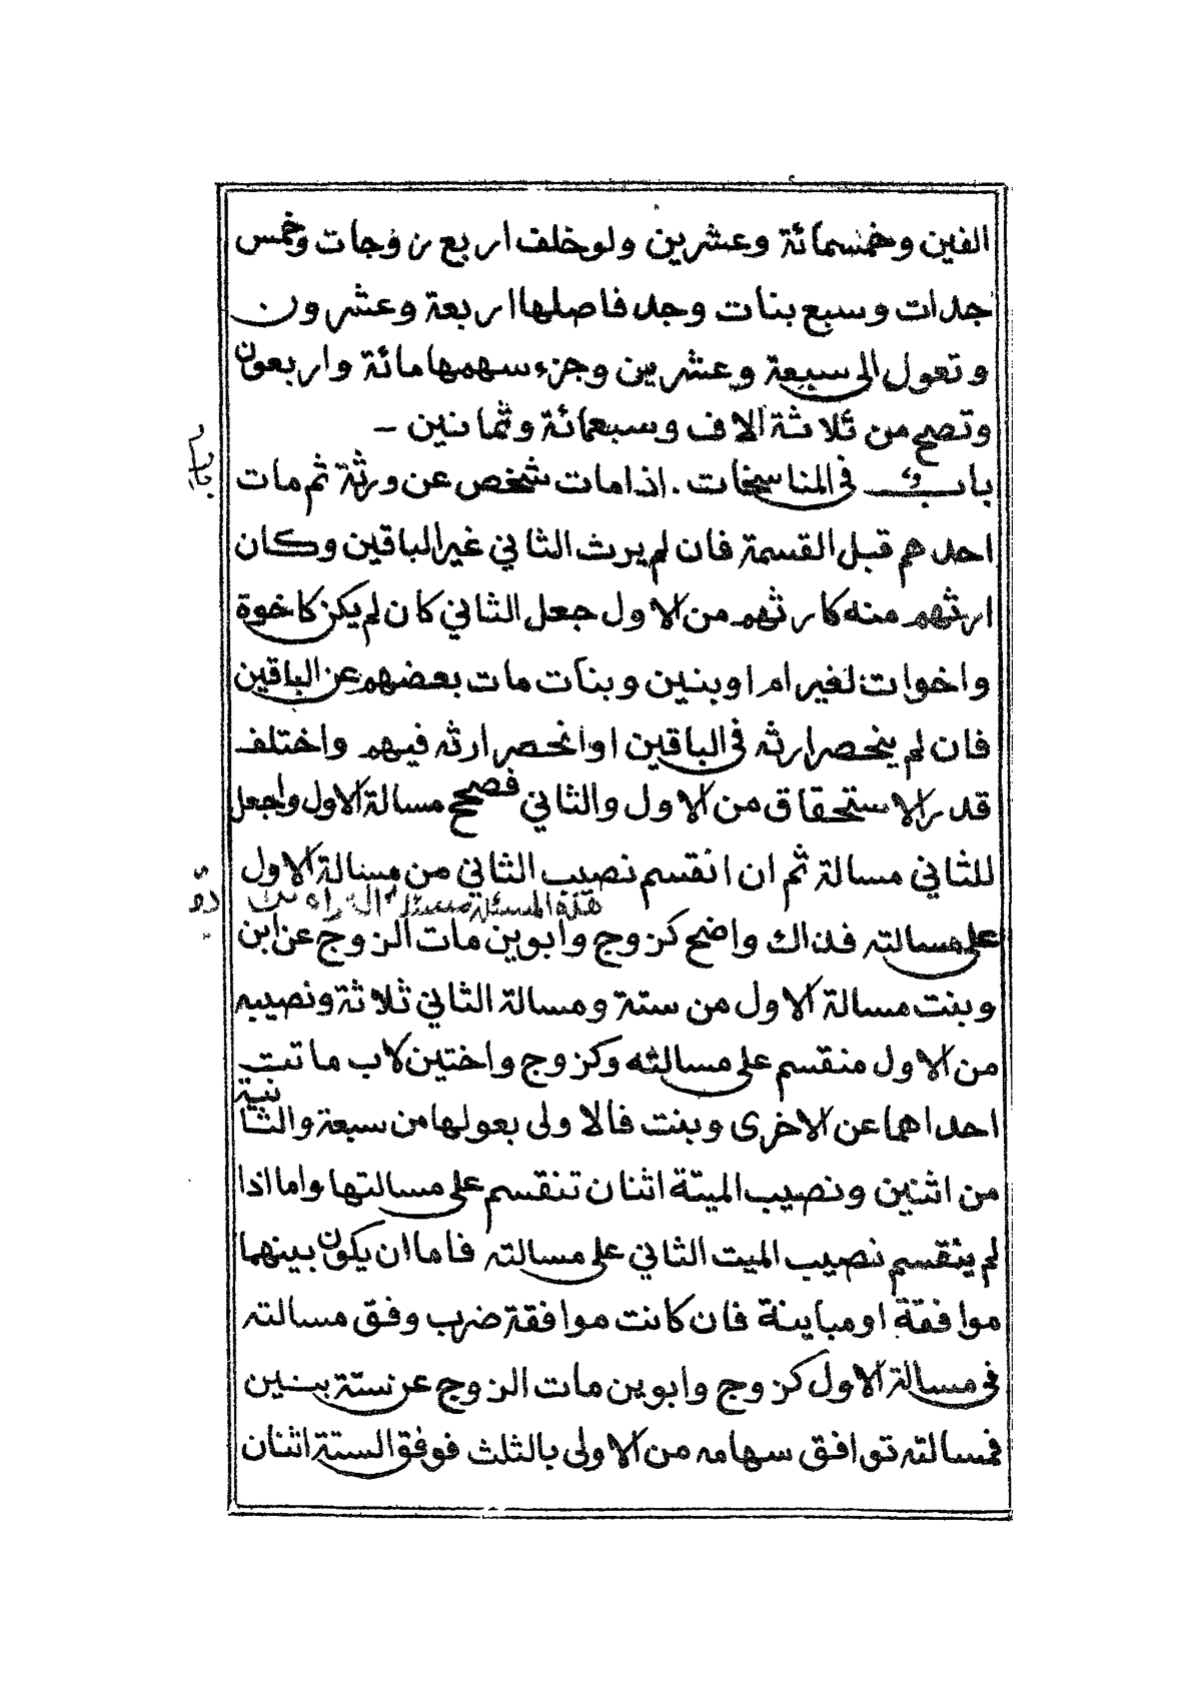 الفين وخمسمائة وعشرين ولو خلف اربع زوجات وخمس
جدات وسبع بنات وجد فاصلها اربعة وعشرون
وتعول الى سبعة وعشرين وجزء سهمها مائة واربعون
وتصح من ثلاثة الاف وسبعمائة وثمانين -
باب في المناسخات . اذا مات شخص عن ورثة ثم مات
احدهم قبل القسمة فان لم يرث الثاني غير الباقين وكان
ارثهم منه كارثهم من الاول جعل الثاني كان لم يكن كاخوة
واخوات لغير ام او بنين وبنات مات بعضهم عن الباقين
فان لم ينحصر ارثه في الباقين او انحصر ارثه فيهم واختلف
قدر الاستحقاق من الاول والثاني فصحح مسالة الاول واجعل
للثاني مسالة ثم ان انقسم نصيب الثاني من مسالة الاول
هذه المسئلة
على مسالته فذاك واضح كزوج وابوين مات الزوج عن ابن
وبنت مسالة الاول من ستة ومسالة الثاني ثلاثة ونصيبه
من الاول منقسم على مسالته وكزوج واختين لاب ماتت
احداهما عن الاخرى وبنت فالاولى بعولها من سبعة والثانية
من اثنين ونصيب الميتة اثنان تنقسم على مسالتها واما اذا
لم ينقسم نصيب الميت الثاني على مسالته فاما ان يكون بينهما
موافقة او مباينة فان كانت موافقة ضرب وفق مسالته
في مسالة الاول كزوج وابوين مات الزوج عن ستة بنين
فمسالته توافق سهامه من الاولى بالثلث فوفق الستة اثنان
باب